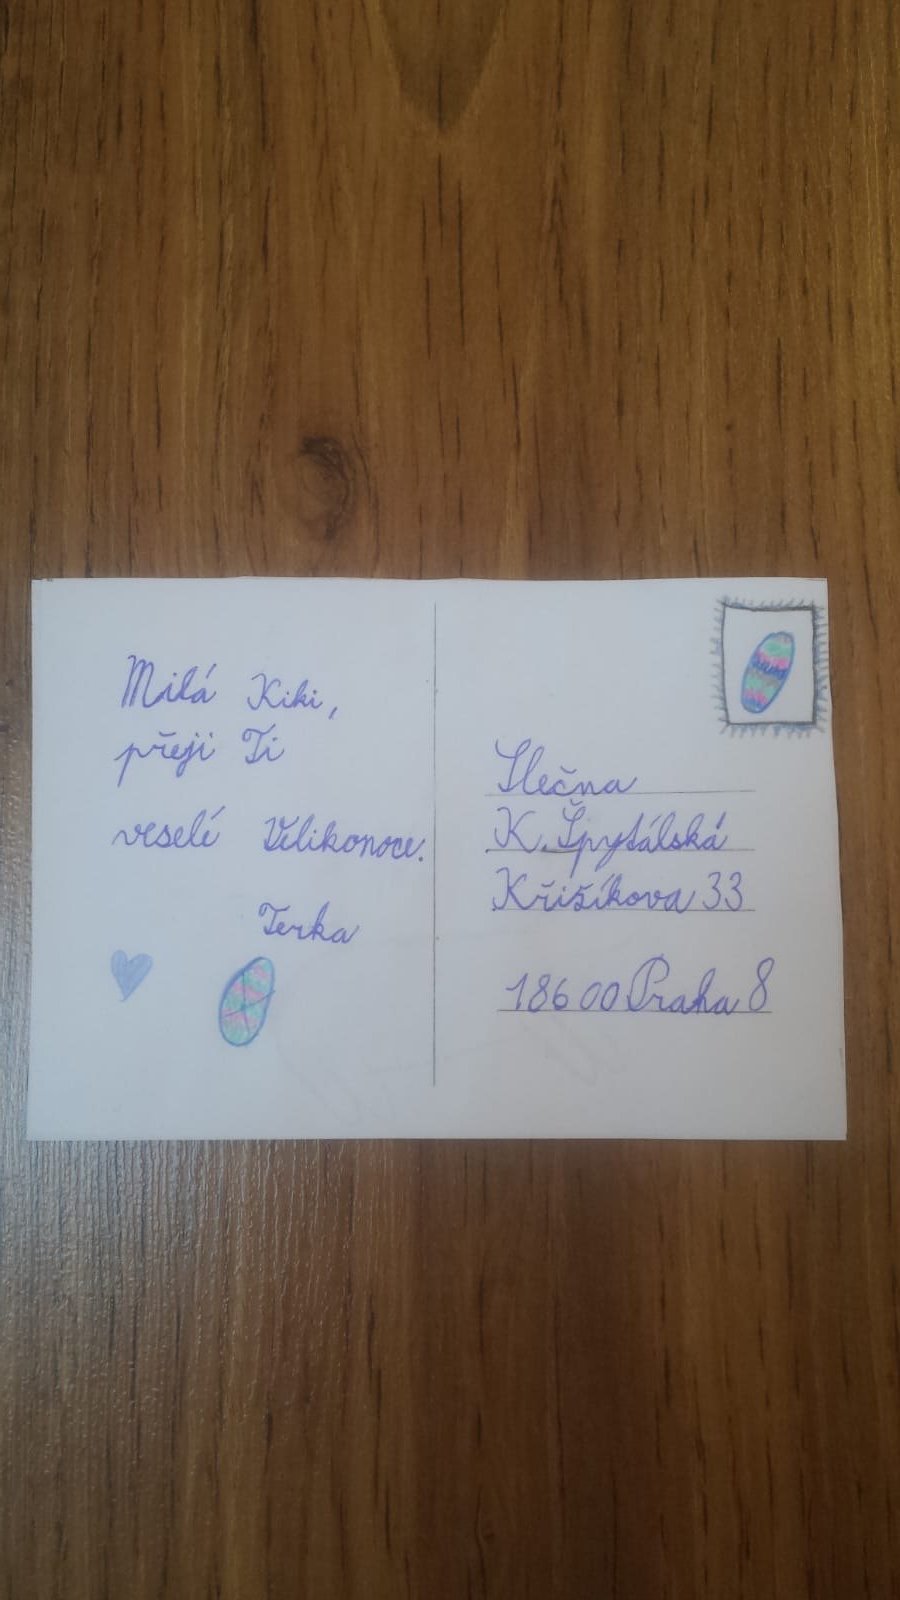 Milá Kiki,
přeji Ti
veselé Velikonoce.
Terka
Slečna
K. Špytálská
Křišíkova 33
186 00 Praha 8